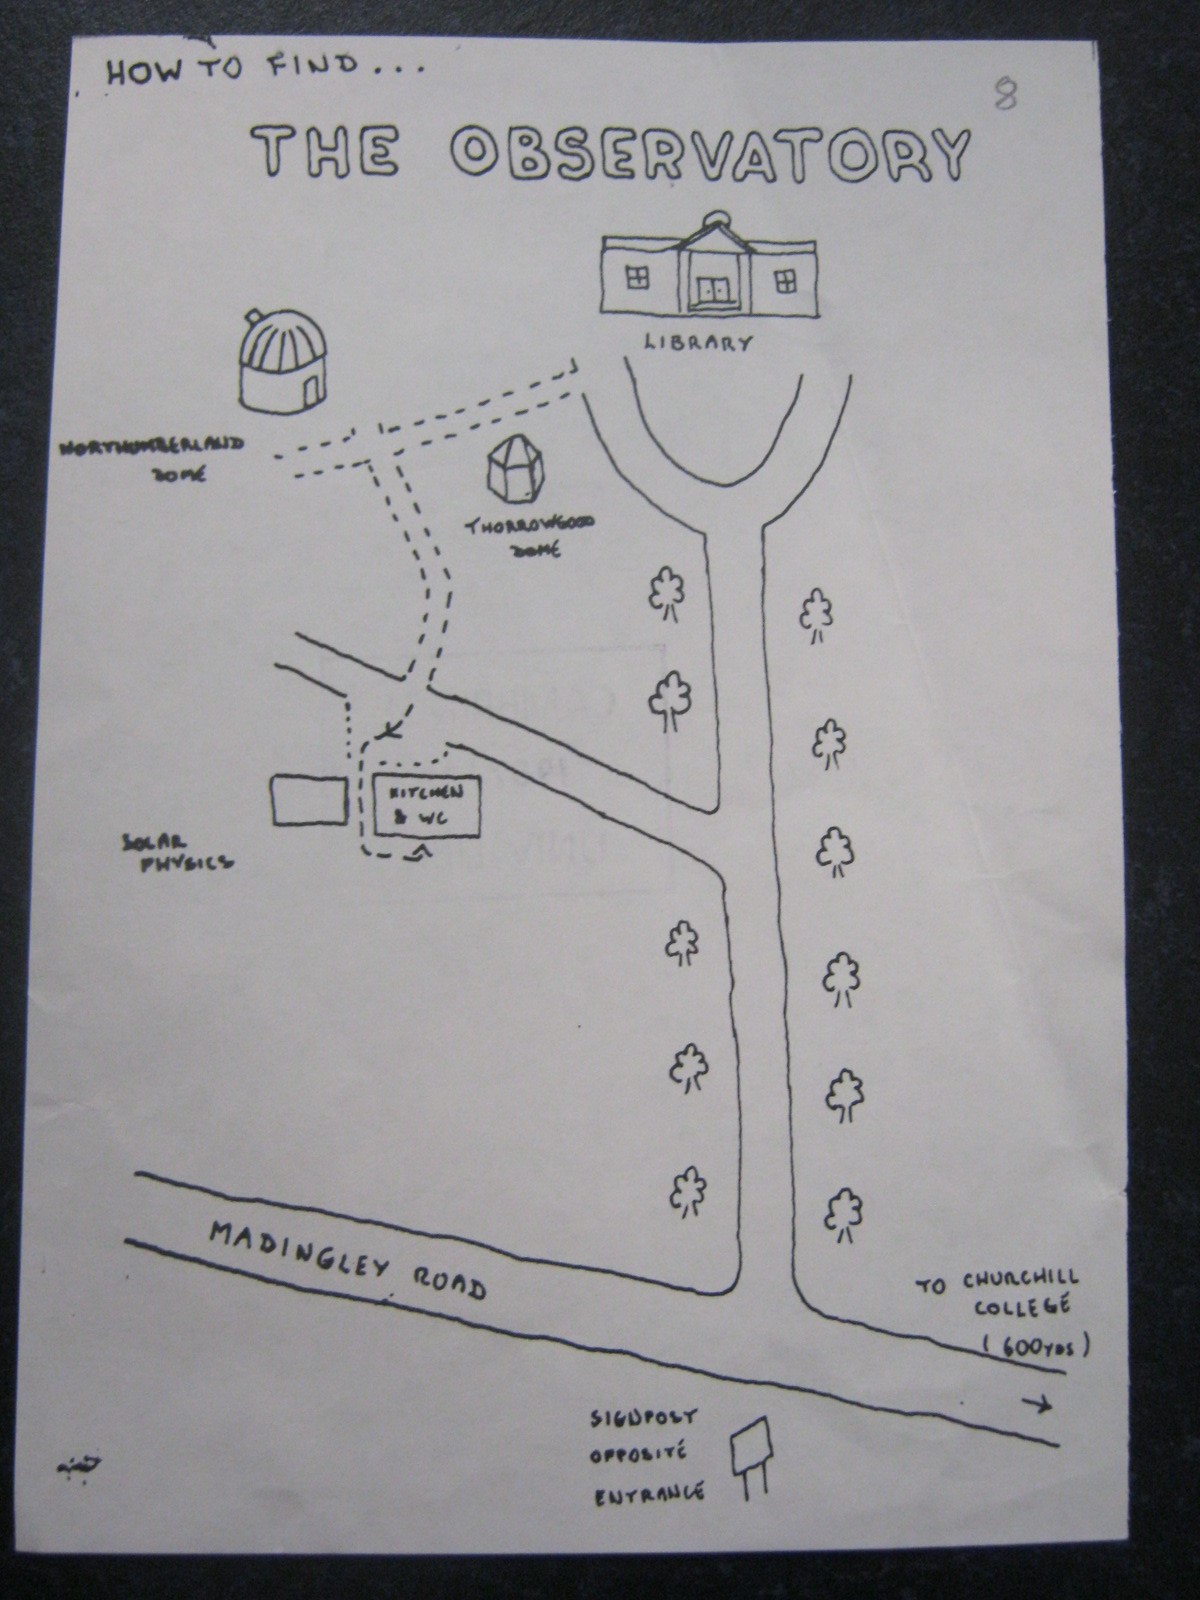 HOW TO FIND...
8
THE OBSERVATORY
LIBRARY
NORTHUMBERLAND
DOME
THORROWGOOD
DOME
KITCHEN
& WC
SOLAR
PHYSICS
MADINGLEY ROAD
TO CHURCHILL
COLLEGE
(600YDS)
SIGNPOST
OPPOSITE
ENTRANCE